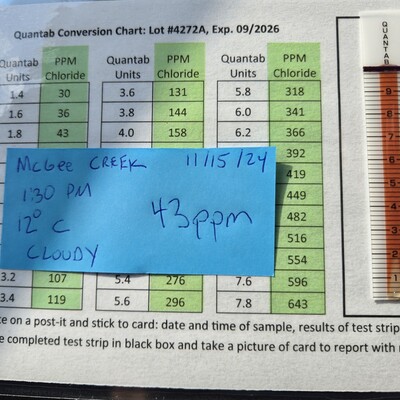 Quantab Conversion Chart: Lot #4272A, Exp. 09/2026
Quantab Units PPM Chloride Quantab Units PPM Chloride Quantab Units PPM Chloride
1.4 30 3.6 131 5.8 318
1.6 36 3.8 144 6.0 341
1.8 43 4.0 158 6.2 366
392
419
449
482
516
554
3.2 107 5.4 276 7.6 596
3.4 119 5.6 296 7.8 643
McGee CREEK 11/15/24
1:30 PM
12° C
43ppm
CLOUDY
e on a post-it and stick to card: date and time of sample, results of test strip
e completed test strip in black box and take a picture of card to report with
QUANTAB
9
8
7
6
5
4
3
2
1